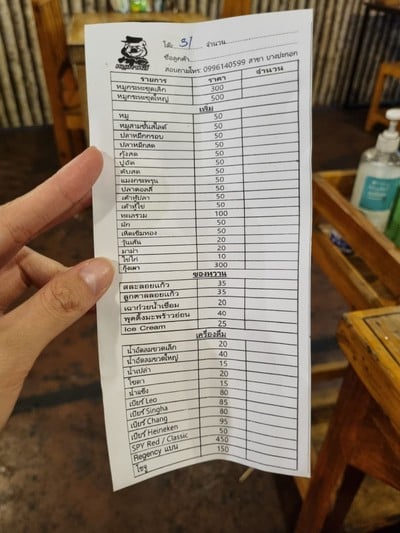 โต๊ะ 3/ จำนวน
ชื่อลูกค้า
สอบถามโทร: 0996140599 สาขา บางปะกอก
รายการ ราคา จำนวน
หมูกระทะชุดเล็ก 300
หมูกระทะชุดใหญ่ 500
เพิ่ม
หมู 50
หมูสามชั้นสไลด์ 50
ปลาหมึกกรอบ 50
ปลาหมึกสด 50
กุ้งสด 50
ปูอัด 50
ตับสด 50
แมงกระพรุน 50
ปลาดอลลี่ 50
เต้าหู้ปลา 50
เต้าหู้ไข่ 50
ทะเลรวม 100
ผัก 50
เห็ดเข็มทอง 50
วุ้นเส้น 20
มาม่า 20
ไข่ไก่ 10
กุ้งเผา 300
ของหวาน
สละลอยแก้ว 35
ลูกตาลลอยแก้ว 35
เฉาก๊วยน้ำเชื่อม 20
พุดดิ้งมะพร้าวอ่อน 40
Ice Cream 25
เครื่องดื่ม
น้ำอัดลมขวดเล็ก 20
น้ำอัดลมขวดใหญ่ 40
น้ำเปล่า 15
โซดา 20
น้ำแข็ง 15
เบียร์ Leo 80
เบียร์ Singha 85
เบียร์ Chang 80
เบียร์ Heineken 95
SPY Red / Classic 50
Regency แบน 450
โซจู 150